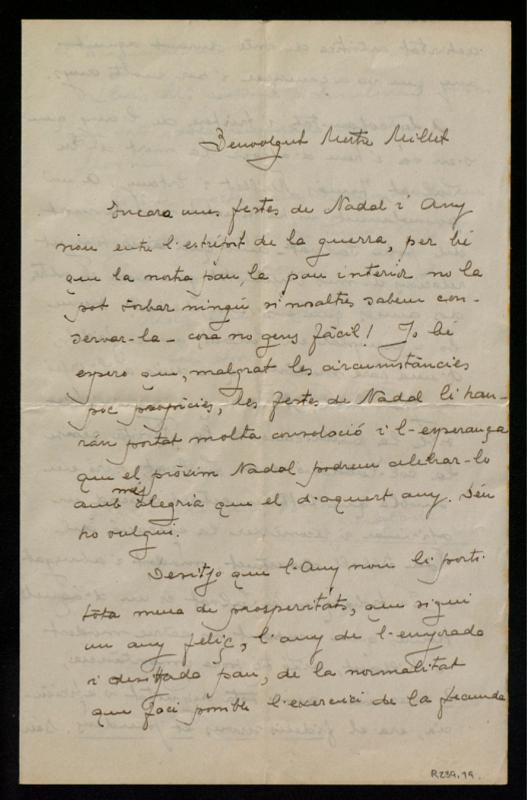 Benvolgut Mestre Millet
Encara unes festes de Nadal i Any
nou entre l'estrépit de la guerra, per bé
que la nostra pau, la pau interior no la
pot torbar ningú si nosaltres sabem con-
servar-la - cosa no gens fàcil! Jo bé
espero que, malgrat les circumstàncies
poc propícies, les festes de Nadal li hau-
rán portat molta consolació i l-esperança
que el próxim Nadal podrem celebrar-lo
amb més alegria que el d'aquest any. Déu
ho vulgui.
Desitjo que l-Any nou li porti
tota mena de prosperitats, que sigui
un any feliç, l'any de l'enyorada
i desitjada pau, de la normalitat
que faci possible l'exercici de la fecunda
R239,19.